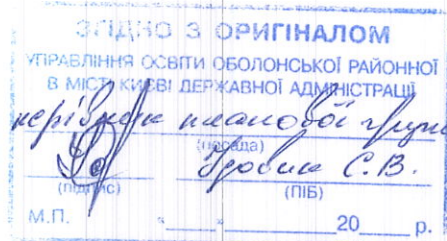 ЗГІДНО З ОРИГІНАЛОМ
УПРАВЛІННЯ ОСВІТИ ОБОЛОНСЬКОЇ РАЙОННОЇ
В МІСТІ КИЄВІ ДЕРЖАВНОЇ АДМІНІСТРАЦІЇ
керівник планової групи
(посада)
Удовик С.В.
(підпис) (ПІБ)
М.П. "___"________20___р.